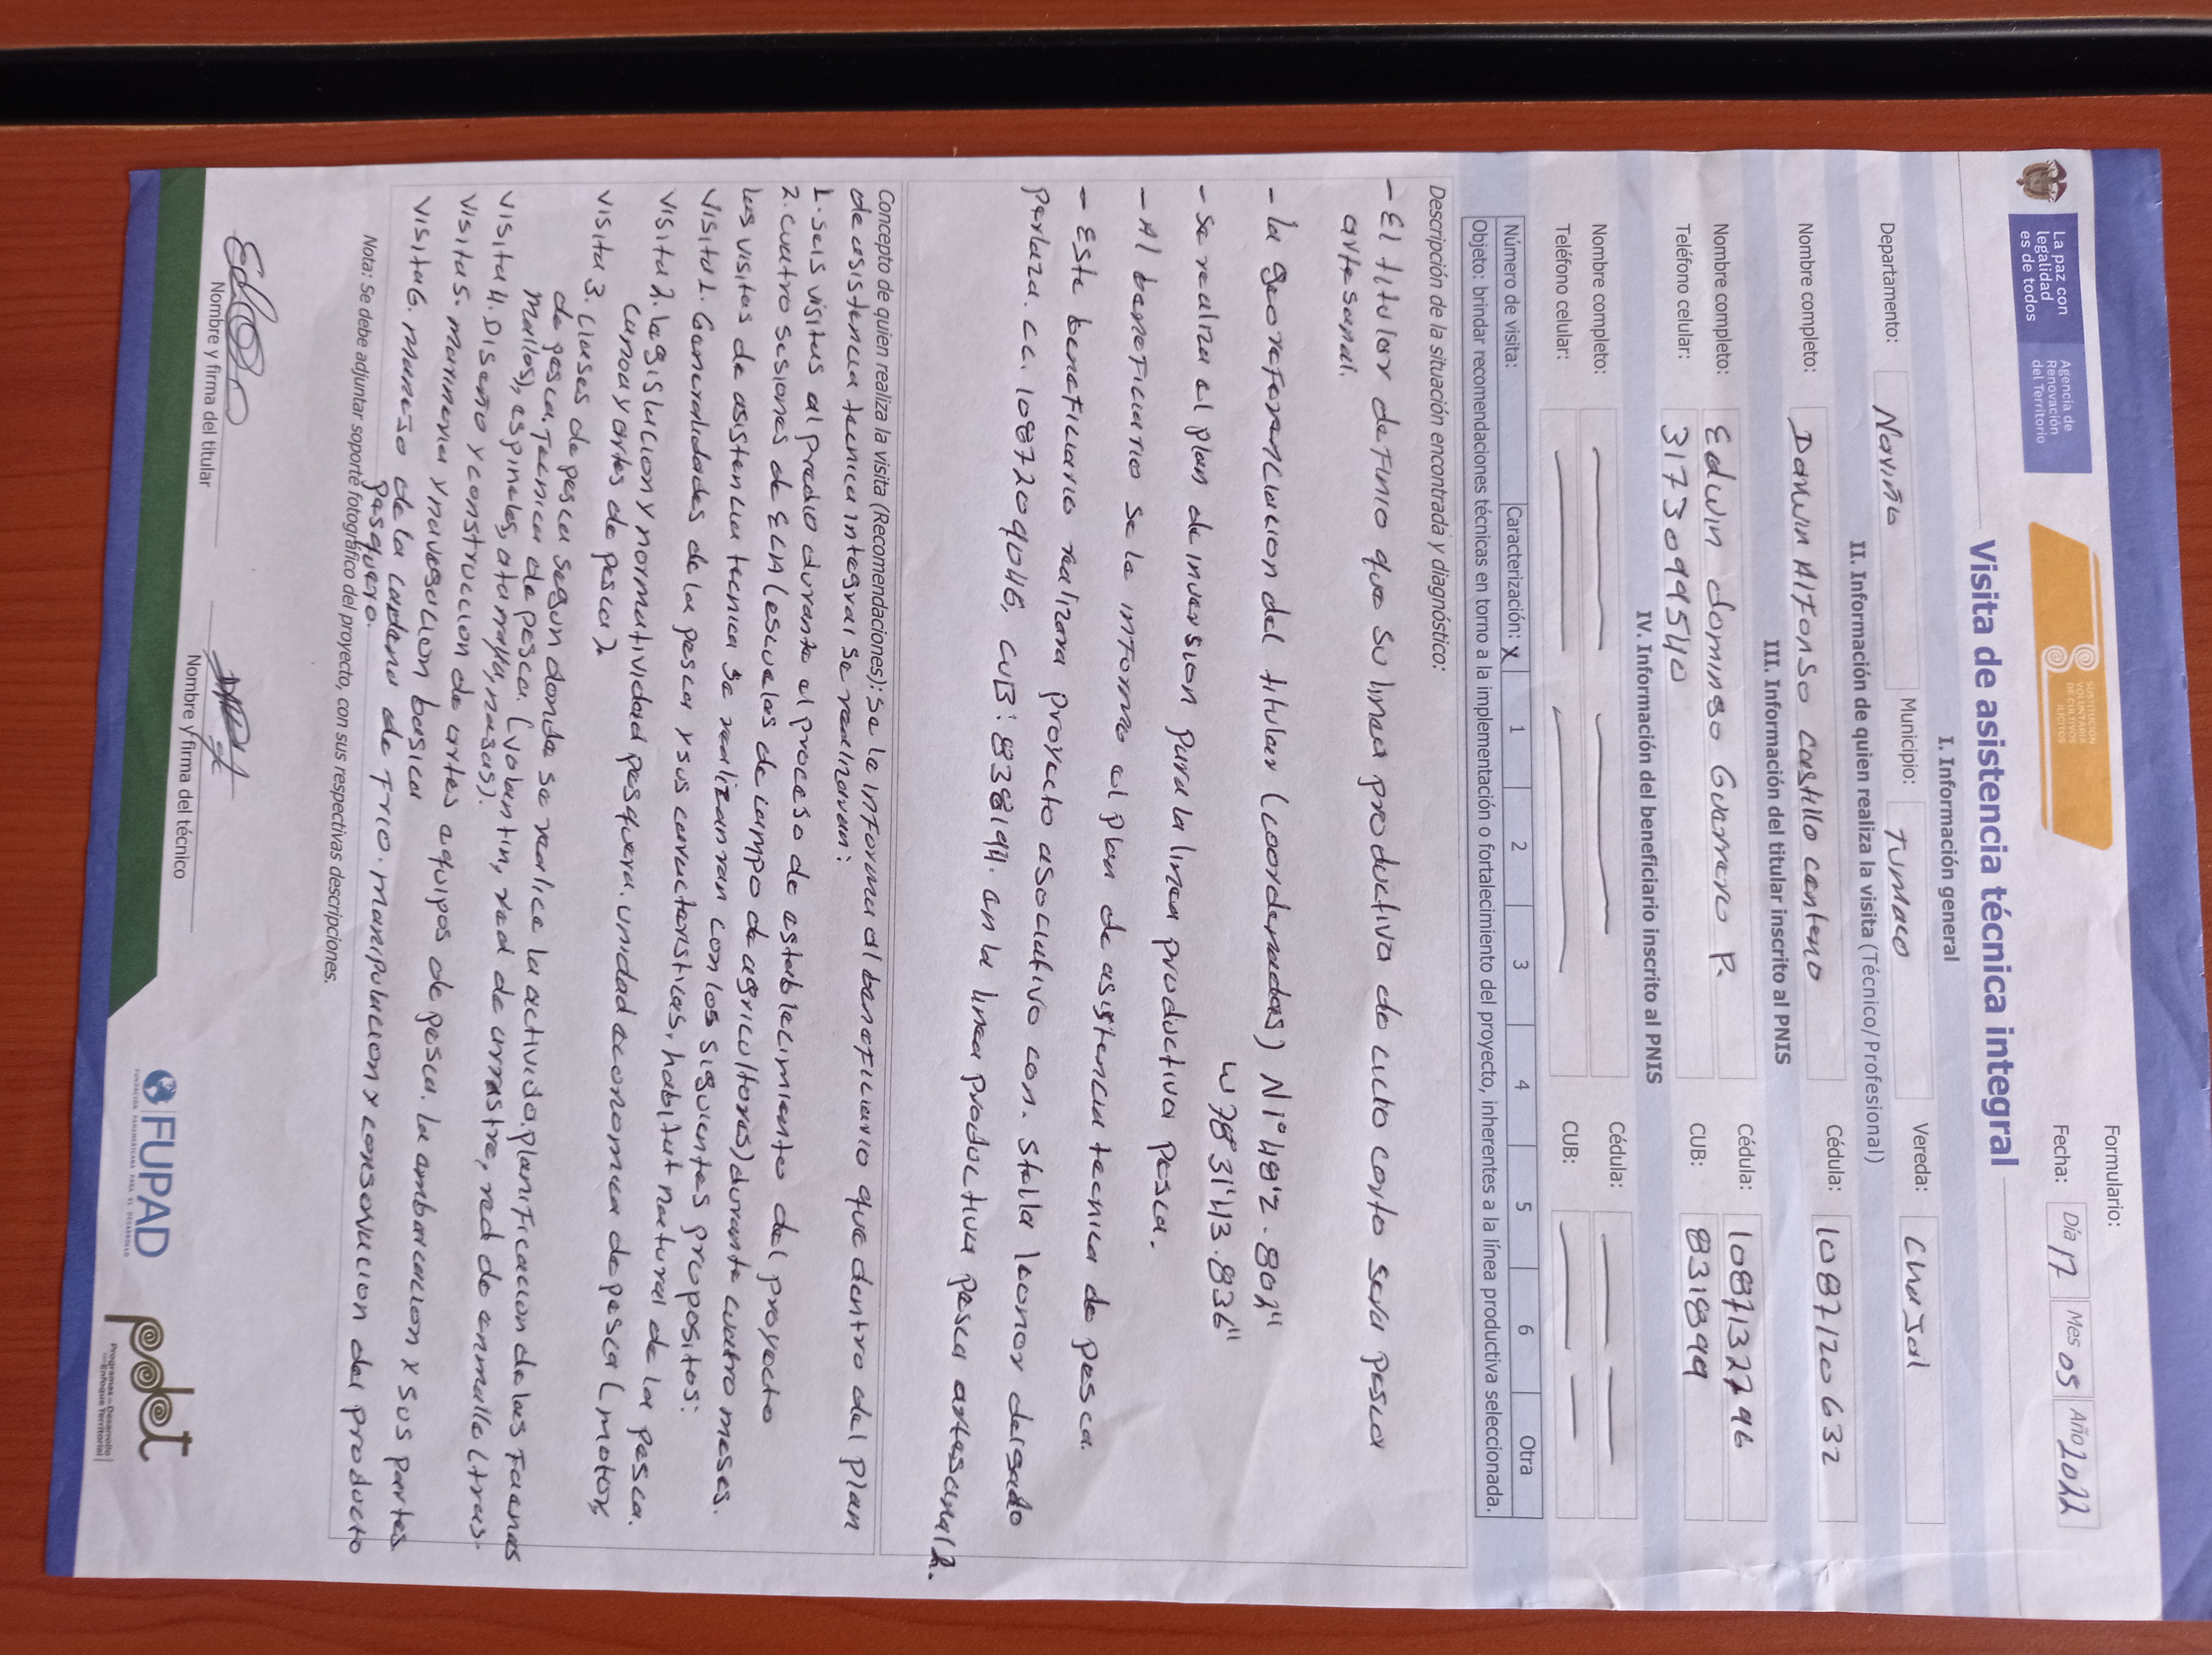 La paz con
legalidad
es de todos
Agencia de
Renovación
del Territorio
SUSTITUCIÓN
VOLUNTARIA
DE CULTIVOS
ILÍCITOS
Formulario:
Fecha: Día 17 Mes 05 Año 2022
Visita de asistencia técnica integral
I. Información general
Departamento: Nariño Municipio: Tumaco Vereda: Chajal
II. Información de quien realiza la visita (Técnico/Profesional)
Nombre completo: Darwin Alfonso Castillo Centeno Cédula: 1087120632
III. Información del titular inscrito al PNIS
Nombre completo: Edwin domingo Guerrero P. Cédula: 1087132796
Teléfono celular: 3173099540 CUB: 831899
IV. Información del beneficiario inscrito al PNIS
Nombre completo: Cédula:
Teléfono celular: CUB:
Número de visita: Caracterización: X 1 2 3 4 5 6 Otra
Objeto: brindar recomendaciones técnicas en torno a la implementación o fortalecimiento del proyecto, inherentes a la línea productiva seleccionada.
Descripción de la situación encontrada y diagnóstico:
- El titular definio que su linea productiva de ciclo corto sera pesca
artesanal.
- la georeferenciacion del titular (coordenadas) N1°48'2.802"
W78°31'43.836"
- se realiza el plan de inversion para la linea productiva pesca.
- Al beneficiario se le informo el plan de asistencia tecnica de pesca.
- Este beneficiario realizara proyecto asociativo con. Stella leonor delgado
perlaza. CC. 1087209046, CUB: 838194. en la linea productiva pesca artesanal.
Concepto de quien realiza la visita (Recomendaciones): se le informa al beneficiario que dentro del plan
de asistencia tecnica integral se realizaran:
1. seis visitas al predio durante el proceso de establecimiento del proyecto
2. cuatro sesiones de ECA (escuelas de campo de agricultores) durante cuatro meses.
las visitas de asistencia tecnica se realizaran con los siguientes propositos:
visita 1. Generalidades de la pesca y sus caracteristicas, habitat natural de la pesca.
visita 2. legislacion y normatividad pesquera. unidad economica de pesca (motor,
canoa y artes de pesca)
visita 3. clases de pesca segun donde se realice la actividad. planificacion de las faenas
de pesca. Tecnica de pesca. (volantin, red de arrastre, red de enmalle (tras-
mallos), espineles, atarraya, nasas).
visita 4. Diseño y construccion de artes a quipos de pesca. la embarcacion y sus partes
visita 5. marineria y navegacion basica
visita 6. manejo de la cadena de frio. manipulacion y conservacion del producto
pesquero.
Nota: Se debe adjuntar soporte fotográfico del proyecto, con sus respectivas descripciones.
Nombre y firma del titular
Nombre y firma del técnico
FUPAD
FUNDACIÓN PANAMERICANA PARA EL DESARROLLO
pdet
Programas de Desarrollo
con Enfoque Territorial